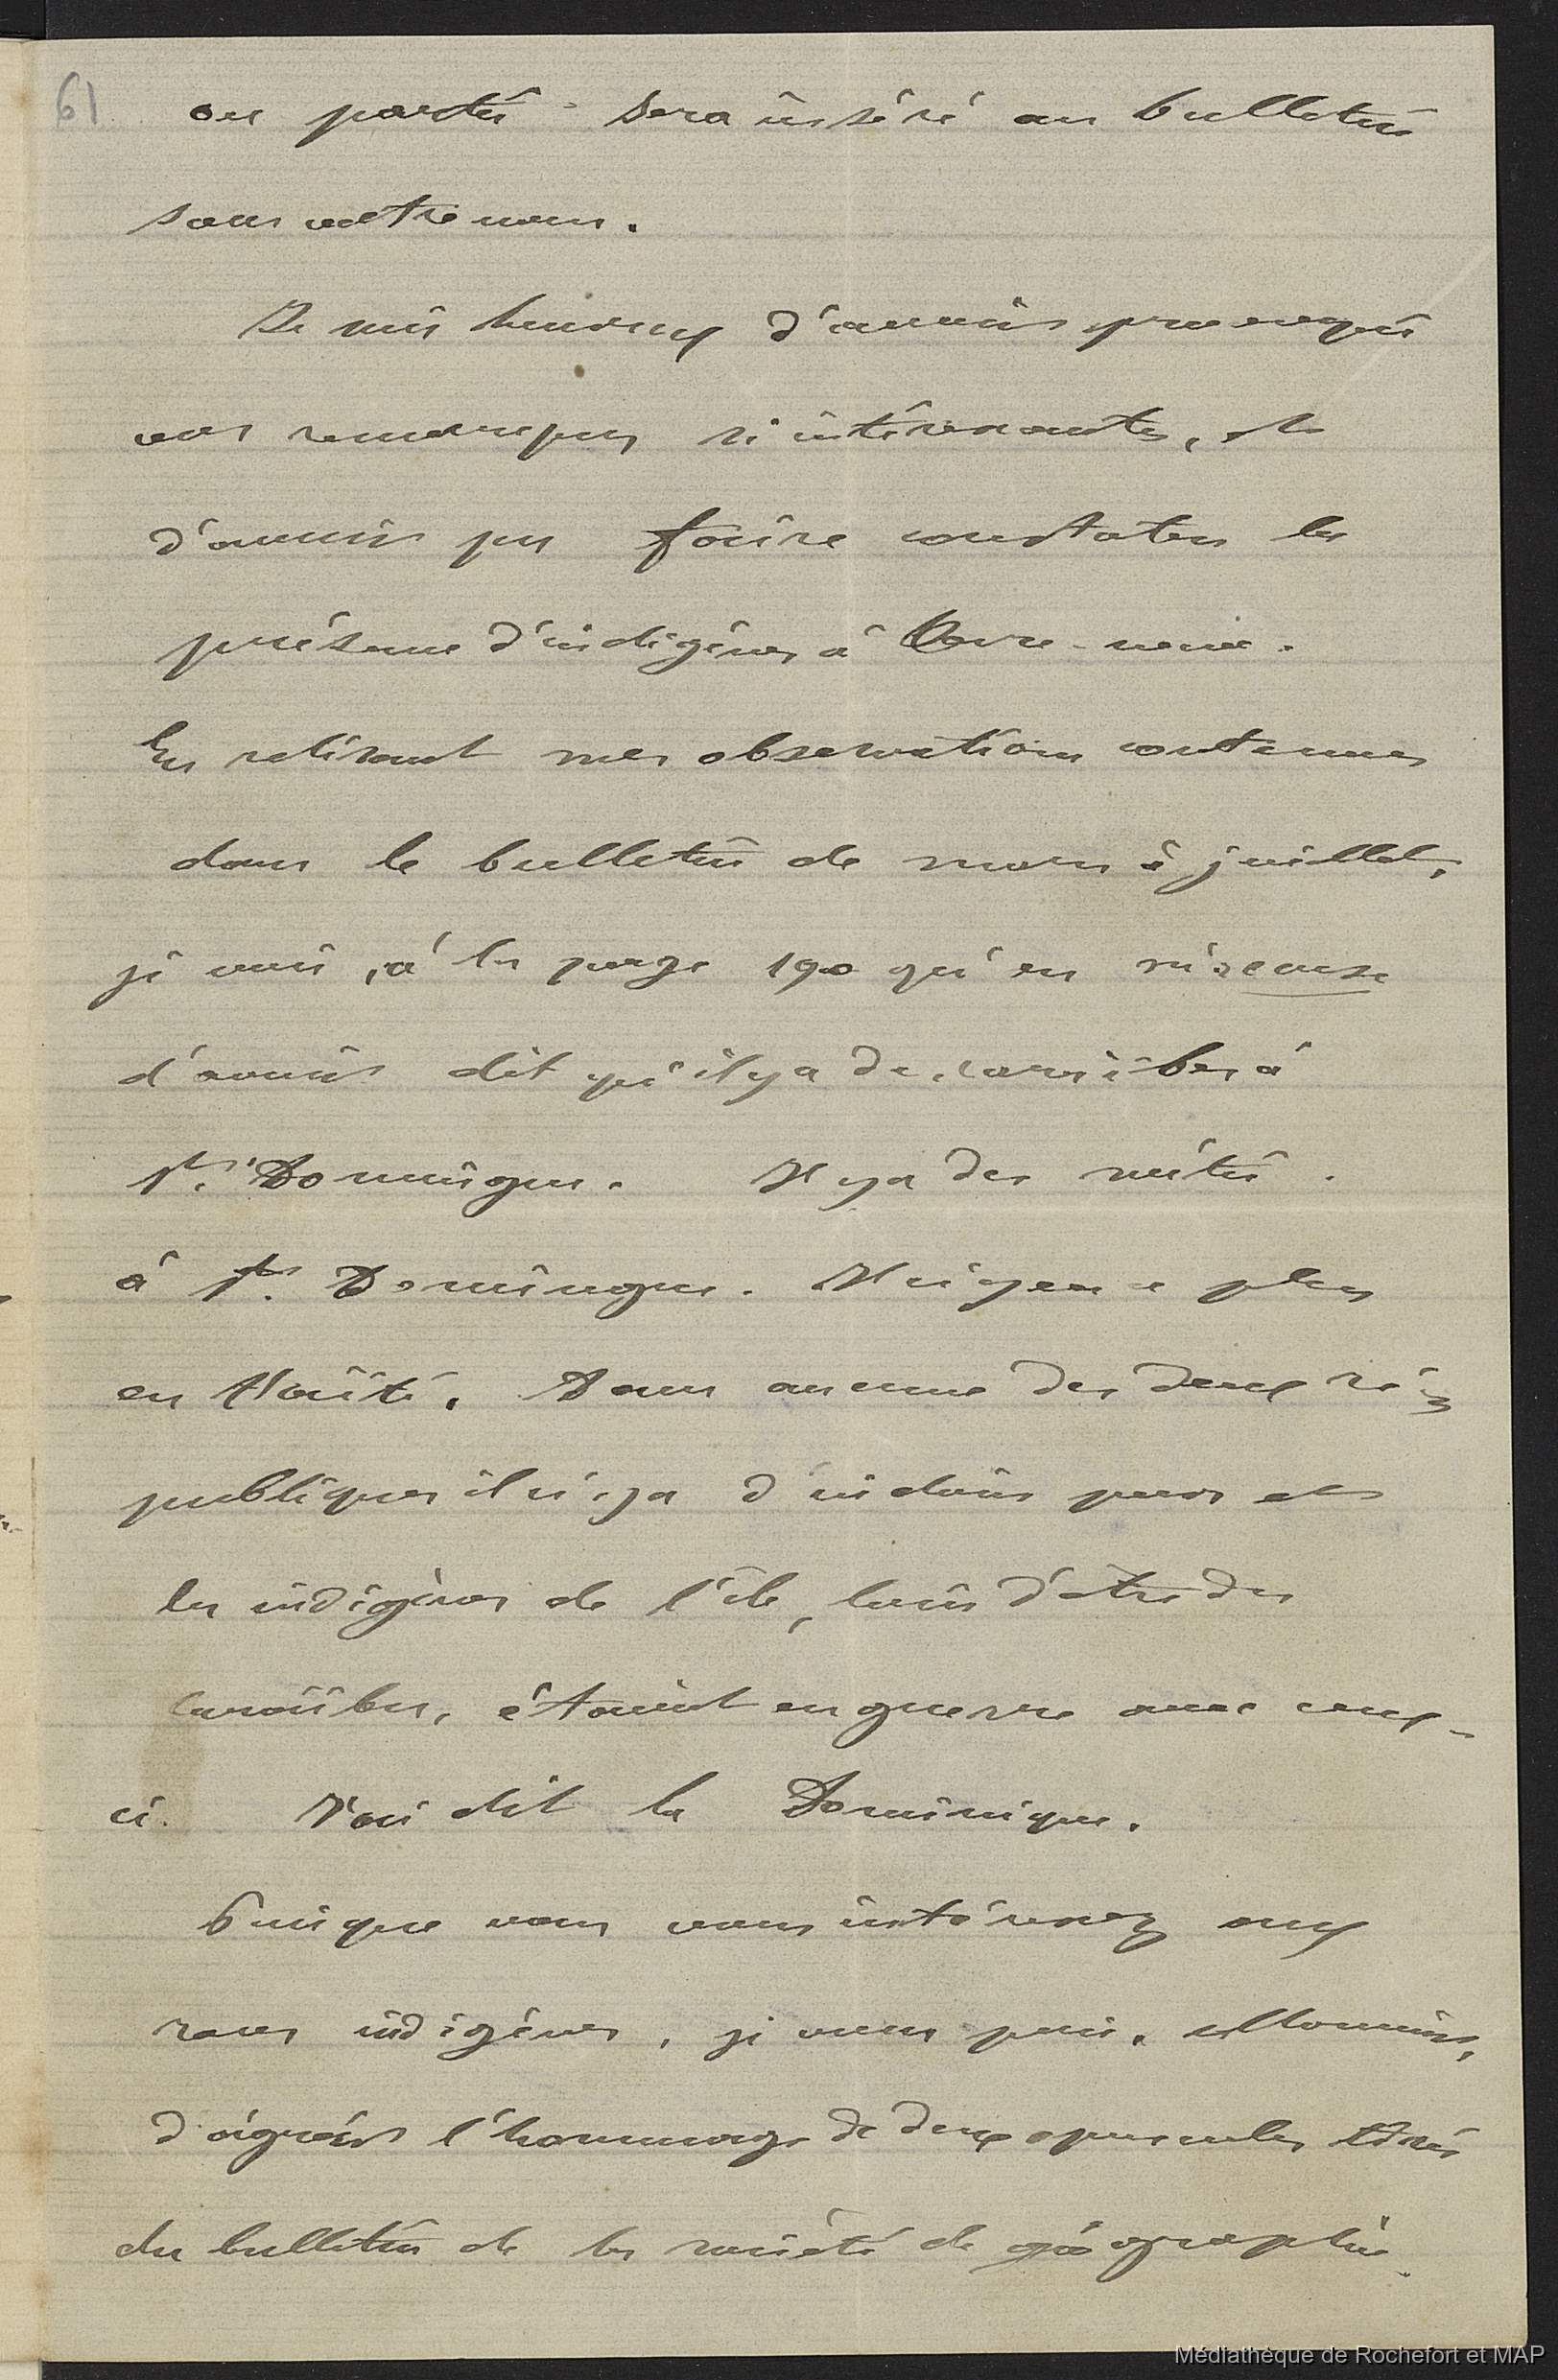 61
ou partie sera inséré au bulletin
sous votre nom.
Je suis heureux d'avoir provoqué
vos remarques si intéressantes, et
d'avoir pu faire constater la
présence d'indigènes à
En relisant mes observations contenues
dans le bulletin de mars à juillet,
je vois, à la page 190 qu'on m'accuse
d'avoir dit qu'il y a des caraïbes à
St. Domingue. Il y a des métis
à St. Domingue. Il n'y en a plus
en Haïti. Dans aucune des deux ré-
publiques il n'y a d'indiens purs et
les indigènes de l'île, loin d'être des
caraïbes, étaient en guerre avec ceux-
ci. J'ai dit la Dominique.
Puisque vous vous intéressez aux
races indigènes, je vous prie, Monsieur,
d'agréer l'hommage de deux opuscules tirés
du bulletin de la société de géographie
Médiathèque de Rochefort et MAP